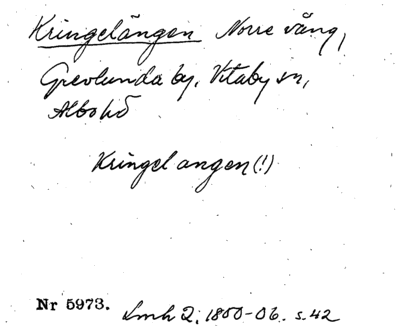 Kringelängen Norre vång,
Grevlunda by, Vitaby sn,
Albo hd
Kringel angen (!)
Nr 5973. Lmh 2. 1800-06. s. 42